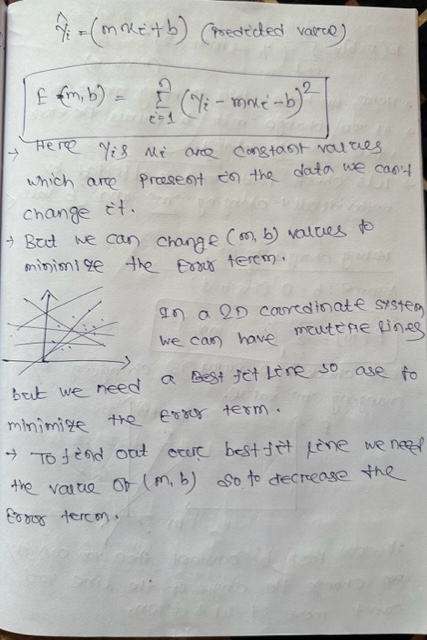 ŷi = (mxi + b) (predicted value)
E (m, b) = Σ_{i=1}^{n} (yi - mxi - b)²
→ Here yi & xi are constant values
which are present in the data we can't
change it.
→ But we can change (m, b) values to
minimize the Error term.
In a 2D coordinate system
we can have multiple lines
but we need a Best fit line so ase to
minimize the error term.
→ To find out our best fit line we need
the value of (m, b) so to decrease the
Error term.